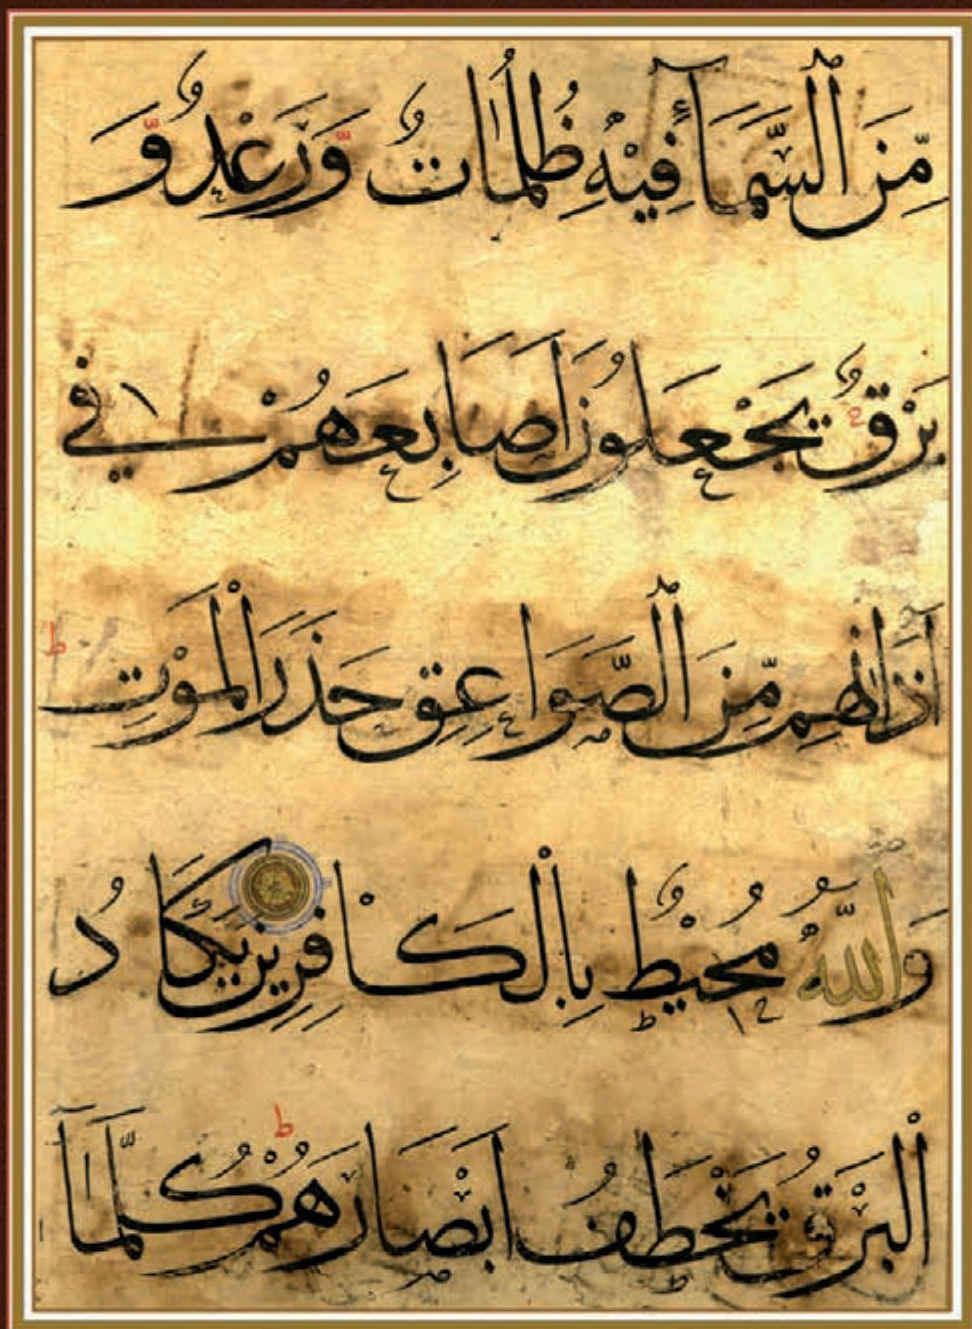 مِّنَ ٱلسَّمَآءِ فِيْهِ ظُلُمَاتٌ وَّرَعْدٌ وَّ
بَرْقٌ يَجْعَلُوْنَ اَصَابِعَهُمْ فِي
اٰذَانِهِم مِّنَ ٱلصَّوَاعِقِ حَذَرَ الْمَوْتِ
وَاللّٰهُ مُحِيْطٌ بِالْكَافِرِيْنَ يَكَادُ
الْبَرْقُ يَخْطَفُ اَبْصَارَهُمْ كُلَّمَآ